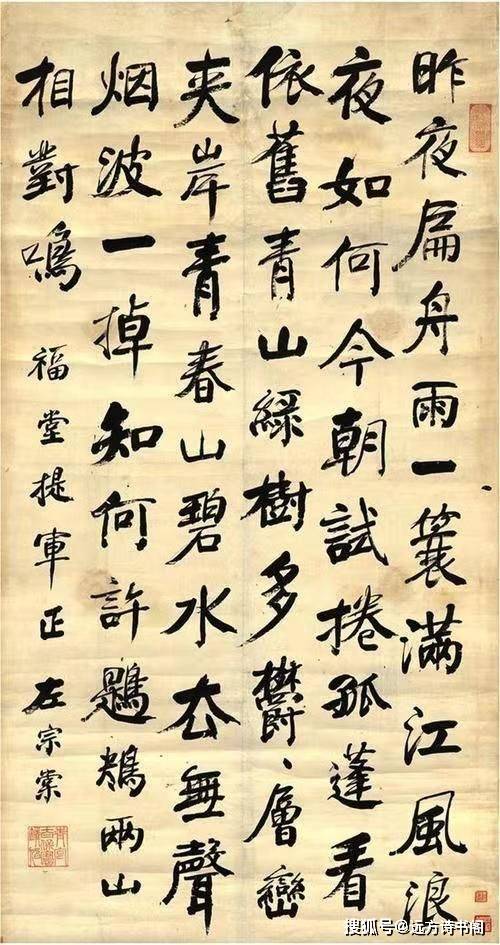 昨夜扁舟雨一蓑滿江風浪
夜如何今朝試捲孤蓬看
依舊青山綠樹多鬱〻層巒
夾岸青春山碧水厺無聲
烟波一掉知何許鶗鴂兩山
相對鳴
福堂提軍正 左宗棠
搜狐号@远方诗书阁